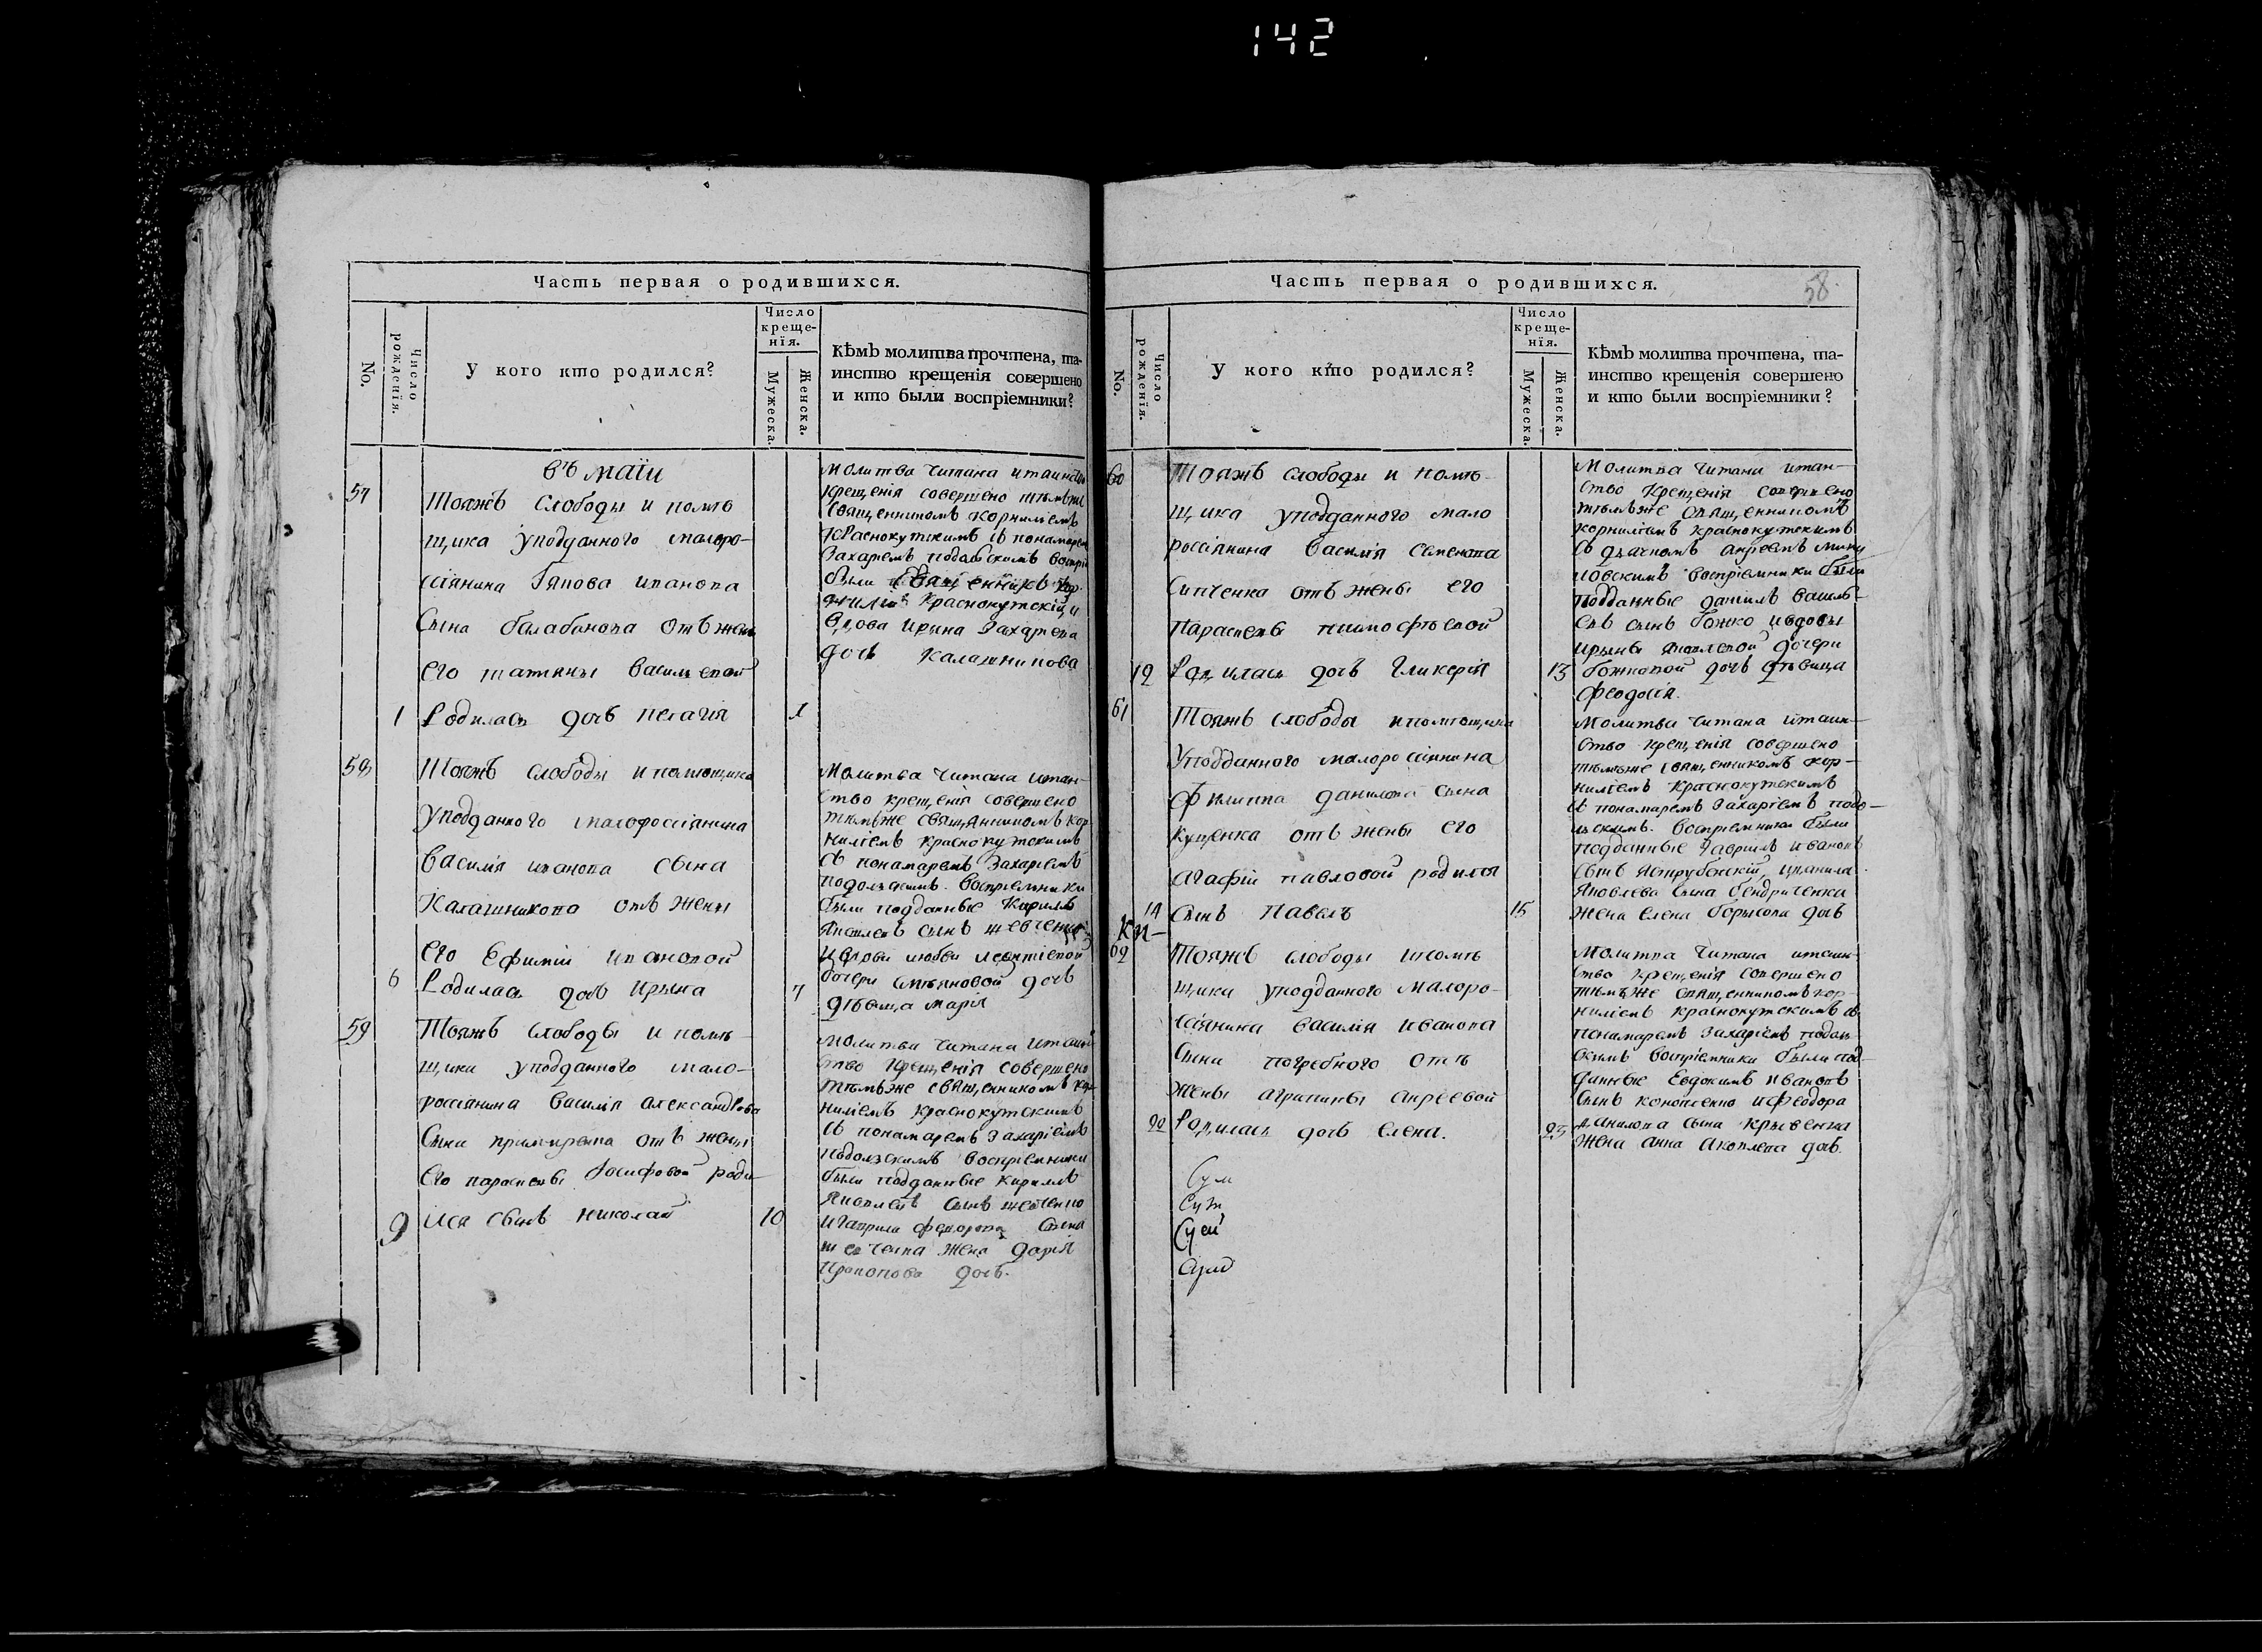 142
Часть первая о родившихся.
No.
Число рожденїя.
У кого кто родился?
Число
креще-
нїя.
Мужеска.
Женска.
Кѣмъ молитва прочтена, та-
инство крещенія совершено
и кто были воспріемники?
въ маїи
57
Тояжъ слободы и помѣ
щика уподданного малоро-
сіянина Иванова
Сына балабанова отъ жены
его татяны Васильевой
1 Родилась дочь пелагія 1
Молитва читана итаинство
крещенія совершено тѣмъже
священникомъ корниліемъ
Краснокутскимъ съ понамаремъ
Захаріемъ
были священникъ кор-
нилій Краснокутскій, и
вдова Ирина Захарова
дочь Калашникова
58
Тояжъ слободы и помѣщика
уподданного малоросіянина
Василія иванова сына
Калашникова отъ жены
его Ефиміи ивановой
6 Родилась дочь Ирына 7
Молитва читана итаин-
ство крещенія совершено
тѣмъже священникомъ кор-
ниліемъ краснокутскимъ
съ понамаремъ Захаріемъ
подольскимъ. Воспріемники
были подданные Кирилъ
Яковлевъ сынъ шевченко
дочери дочь
дѣвица марія
59
Тояжъ слободы и помѣ-
щика уподданного мало-
россіянина Василія александрова
Сына отъ жены
его парасковы Іосифовой роди-
9 лся сынъ николай 10
Молитва читана итаин-
ство крещенія совершено
тѣмъже священникомъ кор-
ниліемъ краснокутскимъ
съ понамаремъ Захаріемъ
подолзскимъ воспріемники
были подданные кирилъ
Яковлевъ сынъ шевченко
игаврила федорова сына
шевченка жена дарія
Прокопова дочь.
Часть первая о родившихся.
58.
No.
Число рожденїя.
У кого кто родился?
Число
креще-
нїя.
Мужеска.
Женска.
Кѣмъ молитва прочтена, та-
инство крещенія совершено
и кто были воспріемники?
60
Тояжъ слободы и помѣ-
щика уподданного мало
россіянина Василія Семенова
отъ жены его
Парасковы тимофѣевой
12 Родилась дочь Гликерія 13
Молитва читана итаин-
ство Крещенія совершено
тѣмъже священникомъ
корниліемъ краснокутскимъ
съ дьячкомъ
воспріемники были
подданные даніилъ василь-
евъ сынъ божко ивдовы
ирыны яковлевой дочери
божковой дочь дѣвица
феодосія.
61
Тояжъ слободы ипомѣщика
Уподданного малоросіянина
Филиппа данилова сына
куценка отъ жены его
агафіи павловой родился
14 Сынъ Павелъ 15
Молитва читана итаин-
ство крещенія совершено
тѣмъже священникомъ кор-
ниліемъ Краснокутскимъ
съ понамаремъ Захаріемъ подо-
льскимъ. воспріемники были
подданные Гавриилъ ивановъ
сынъ Яструбенскій,
Яковлева сына бендриченка
жена елена борысова дочь
Кн-
62
Тояжъ слободы ипомѣ
щика уподданного малоро-
сіянина василія иванова
Сына погребного отъ
жены агрипины
22 Родилась дочь елена. 23
Молитва читана итаин-
ство крещенія совершено
тѣмъже священникомъ кор-
ниліемъ краснокутскимъ съ
понамаремъ Захаріемъ подоль-
скимъ воспріемники были под-
данные Евдокимъ ивановъ
сынъ коноплянко ифеодора
данилова сына крывенка
жена анна яковлева дочь.